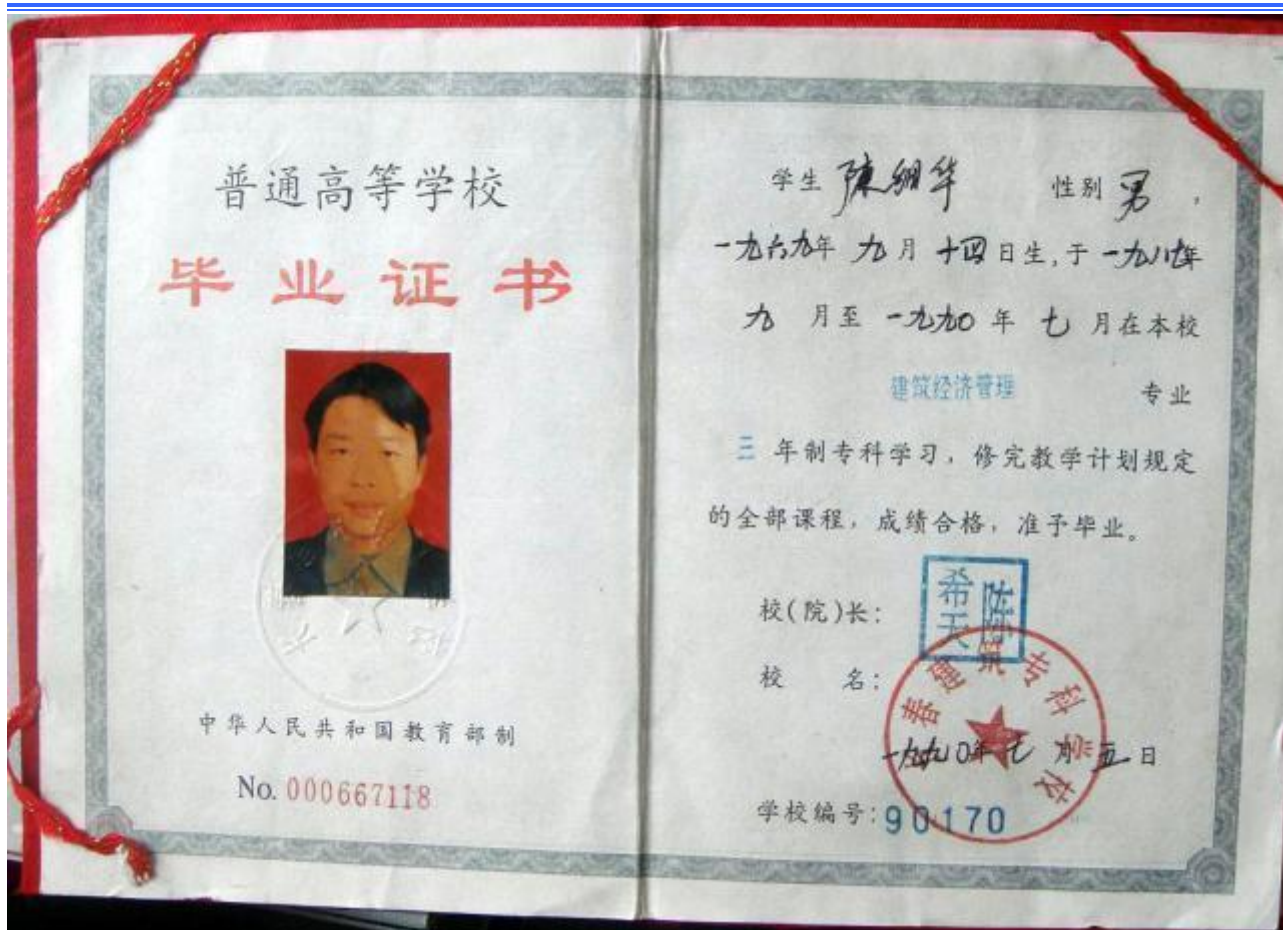 普通高等学校
毕业证书
中华人民共和国教育部制
No. 000667118
学生 陳翔华 性别 男,
一九六九年 九月 十四日生,于 一九八七年
九 月至 一九九〇 年 七 月在本校
建筑经济管理 专业
三 年制专科学习,修完教学计划规定
的全部课程,成绩合格,准予毕业。
校(院)长:
希天
校 名:
春建筑专科学校
一九九〇年七月五日
学校编号:90170